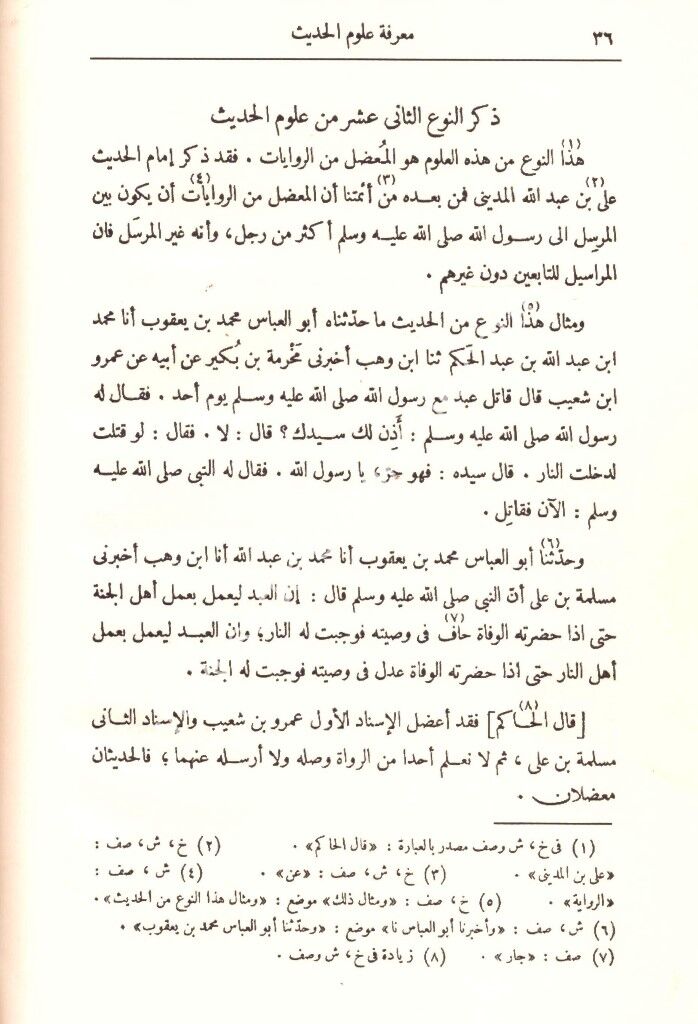 ٣٦ معرفة علوم الحديث
ذكر النوع الثانى عشر من علوم الحديث
هذا (١) النوع من هذه العلوم هو المُعضل من الروايات . فقد ذكر إمام الحديث
على (٢) بن عبد الله المدينى فمن بعده من (٣) أئمتنا أن المعضل من الروايات (٤) أن يكون بين
المرسِل الى رسول الله صلى الله عليه وسلم أكثر من رجل، وأنه غير المرسَل فان
المراسيل للتابعين دون غيرهم .
ومثال هذا (٥) النوع من الحديث ما حدّثناه أبو العباس محمد بن يعقوب أنا محمد
ابن عبد الله بن عبد الحَكم ثنا ابن وهب أخبرنى مَخْرمة بن بُكير عن أبيه عن عمرو
ابن شعيب قال قاتل عبد مع رسول الله صلى الله عليه وسلم يوم أحد . فقال له
رسول الله صلى الله عليه وسلم : أَذِن لك سيدك؟ قال : لا . فقال : لو قتلت
لدخلت النار . قال سيده : فهو حرّ، يا رسول الله . فقال له النبى صلى الله عليه
وسلم : الآن فقاتِل .
وحدّثنا (٦) أبو العباس محمد بن يعقوب أنا محمد بن عبد الله أنا ابن وهب أخبرنى
مسلمة بن على أنّ النبى صلى الله عليه وسلم قال : إن العبد ليعمل بعمل أهل الجنة
حتى اذا حضرته الوفاة حاف (٧) فى وصيته فوجبت له النار؛ وان العبد ليعمل بعمل
أهل النار حتى اذا حضرته الوفاة عدل فى وصيته فوجبت له الجنة .
[قال الحاكم (٨)] فقد أعضل الإسناد الأول عمرو بن شعيب والإسناد الثانى
مسلمة بن على ، ثم لا نعلم أحدا من الرواة وصله ولا أرسله عنهما؛ فالحديثان
معضلان .
(١) فى خ، ش وصف مصدر بالعبارة : «قال الحاكم» . (٢) خ، ش، صف :
«على بن المدينى» . (٣) خ، ش، صف : «عن» . (٤) ش، صف :
«الرواية» . (٥) خ، صف : «ومثال ذلك» موضع : «ومثال هذا النوع من الحديث».
(٦) ش، صف : «وأخبرنا أبو العباس نا» موضع : «وحدّثنا أبو العباس محمد بن يعقوب» .
(٧) صف : «جار» . (٨) زيادة فى خ، ش وصف .